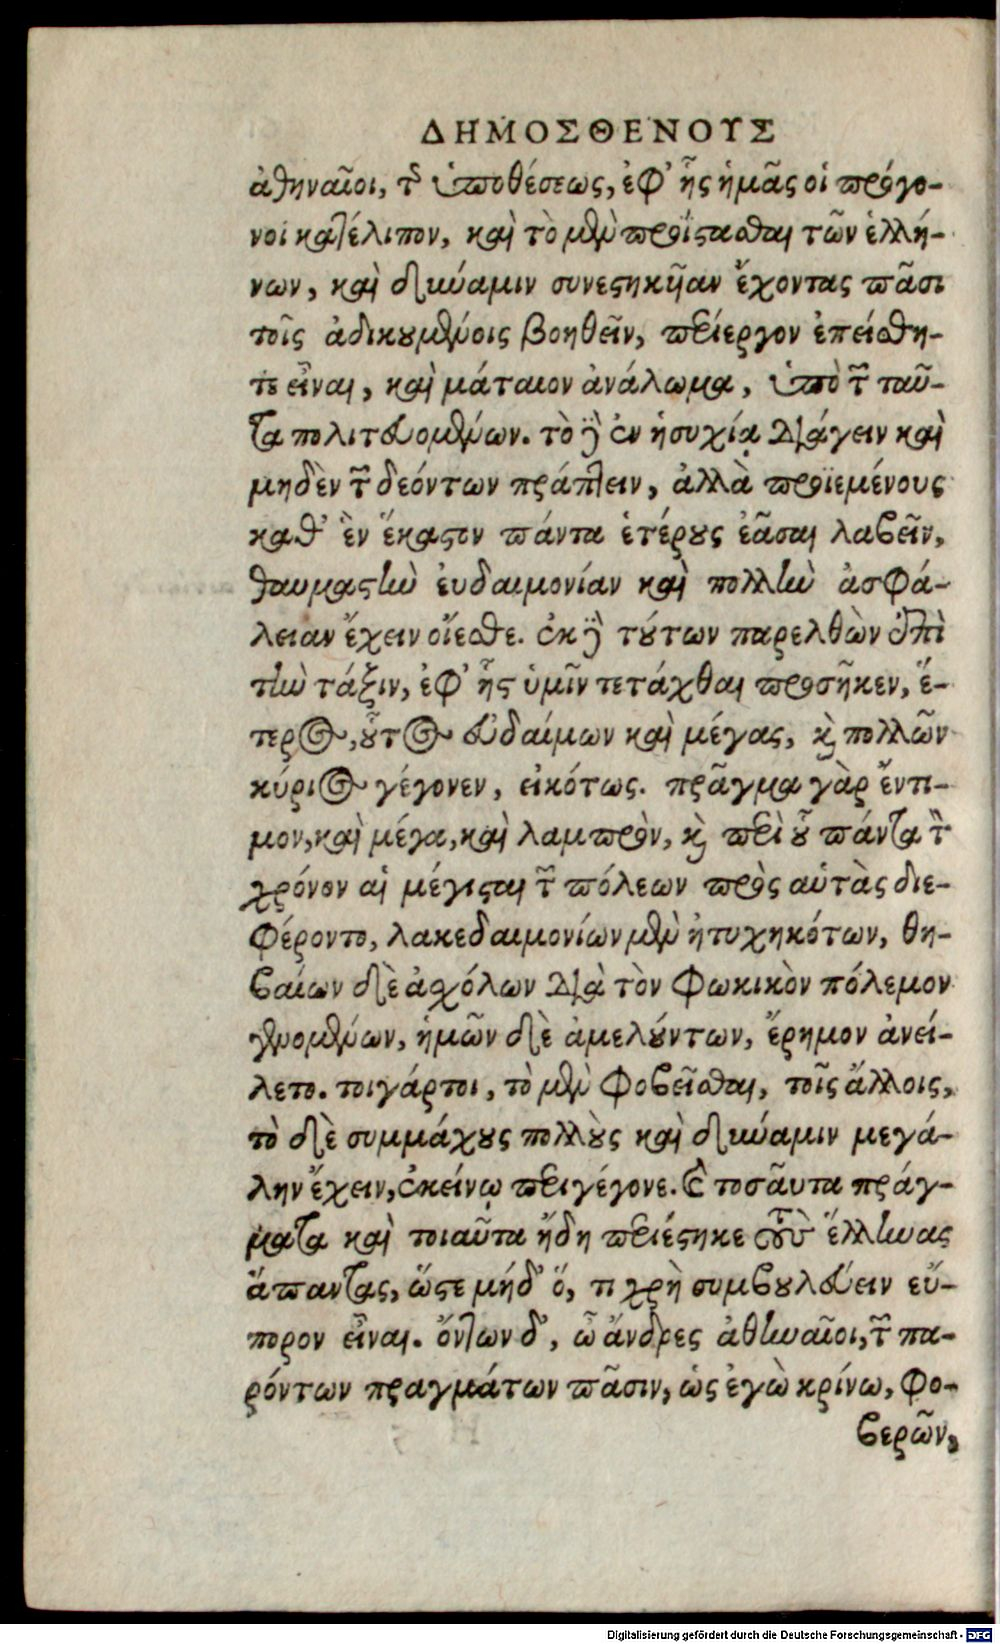 ΔΗΜΟΣΘΕΝΟΥΣ
ἀθηναῖοι, τῆς ὑποθέσεως, ἐφ’ ἧς ἡμᾶς οἱ πρόγο-
νοι κατέλιπον, καὶ τὸ μὲν προΐστασθαι τῶν ἑλλή-
νων, καὶ δύναμιν συνεστηκῆαν ἔχοντας πᾶσι
τοῖς ἀδικουμένοις βοηθεῖν, περίεργον ἐπείσθη-
τε εἶναι, καὶ μάταιον ἀνάλωμα, ὑπὸ τῶν ταῦ-
τα πολιτευομένων. τὸ δὲ ἐν ἡσυχίᾳ διάγειν καὶ
μηδὲν τῶν δεόντων πράττειν, ἀλλὰ προϊεμένους
καθ’ ἓν ἕκαστον πάντα ἑτέρους ἐᾶσαι λαβεῖν,
θαυμαστὴν ἐυδαιμονίαν καὶ πολλὴν ἀσφά-
λειαν ἔχειν οἴεσθε. ἐκ δὲ τούτων παρελθὼν ἐπὶ
τὴν τάξιν, ἐφ’ ἧς ὑμῖν τετάχθαι προσῆκεν, ἕ-
τερος, οὗτος εὐδαίμων καὶ μέγας, καὶ πολλῶν
κύριος γέγονεν, εἰκότως. πρᾶγμα γὰρ ἔντι-
μον, καὶ μέγα, καὶ λαμπρὸν, καὶ περὶ οὗ πάντα τὸν
χρόνον αἱ μέγισται τῶν πόλεων πρὸς αὑτὰς διε-
φέροντο, λακεδαιμονίων μὲν ἠτυχηκότων, θη-
βαίων δὲ ἀσχόλων διὰ τὸν Φωκικὸν πόλεμον
γενομένων, ἡμῶν δὲ ἀμελούντων, ἔρημον ἀνεί-
λετο. τοιγάρτοι, τὸ μὲν φοβεῖσθαι, τοῖς ἄλλοις,
τὸ δὲ συμμάχους πολλοὺς καὶ δύναμιν μεγά-
λην ἔχειν, ἐκείνῳ περιγέγονε. καὶ τοσᾶυτα πράγ-
ματα καὶ τοιαῦτα ἤδη περιέστηκε τοὺς ἕλληνας
ἅπαντας, ὥστε μήδ’ ὅ, τι χρὴ συμβουλεύειν εὔ-
πορον εἶναι. ὄντων δ’, ὦ ἄνδρες ἀθηναῖοι, τῶν πα-
ρόντων πραγμάτων πᾶσιν, ὡς ἐγὼ κρίνω, φο-
βερῶν,
Digitalisierung gefördert durch die Deutsche Forschungsgemeinschaft - DFG